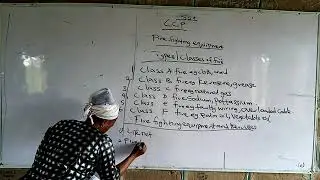 CCP
Fire fighting equipment
Types/Classes of fire
1 Class A fire eg cloth, wood
2 Class B fire eg Kerosene, grease
3 Class C fire eg natural gas
4 Class D fire Sodium, Potassium
5 Class E fire eg faulty wiring, overloaded cable
Class F fire eg Palm oil, Vegetable oil
Fire fighting equipment and